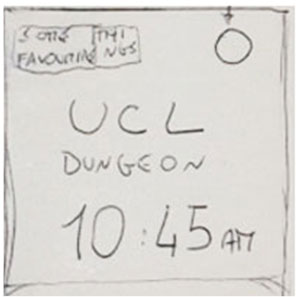 THI
FAVOURITE NGS
UCL
DUNGEON
10:45 AM